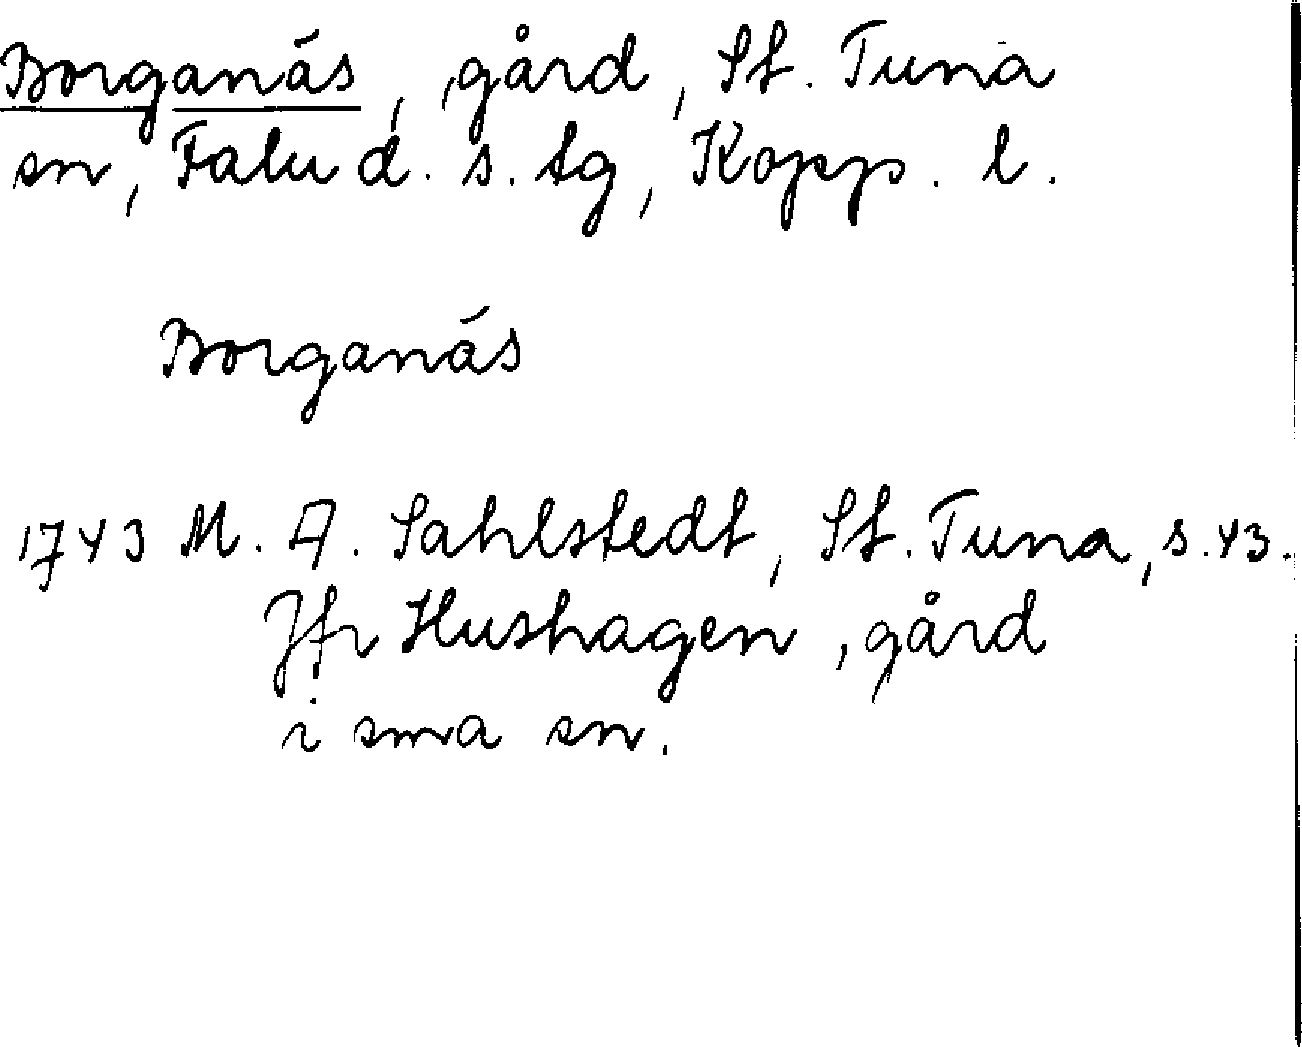 Borganäs, gård, St. Tuna
sn, Falu d. s. tg, Kopp. l.
Borganäs
1743 M. A. Sahlstedt, St. Tuna, s. 43.
Jfr Hushagen, gård
i sma sn.